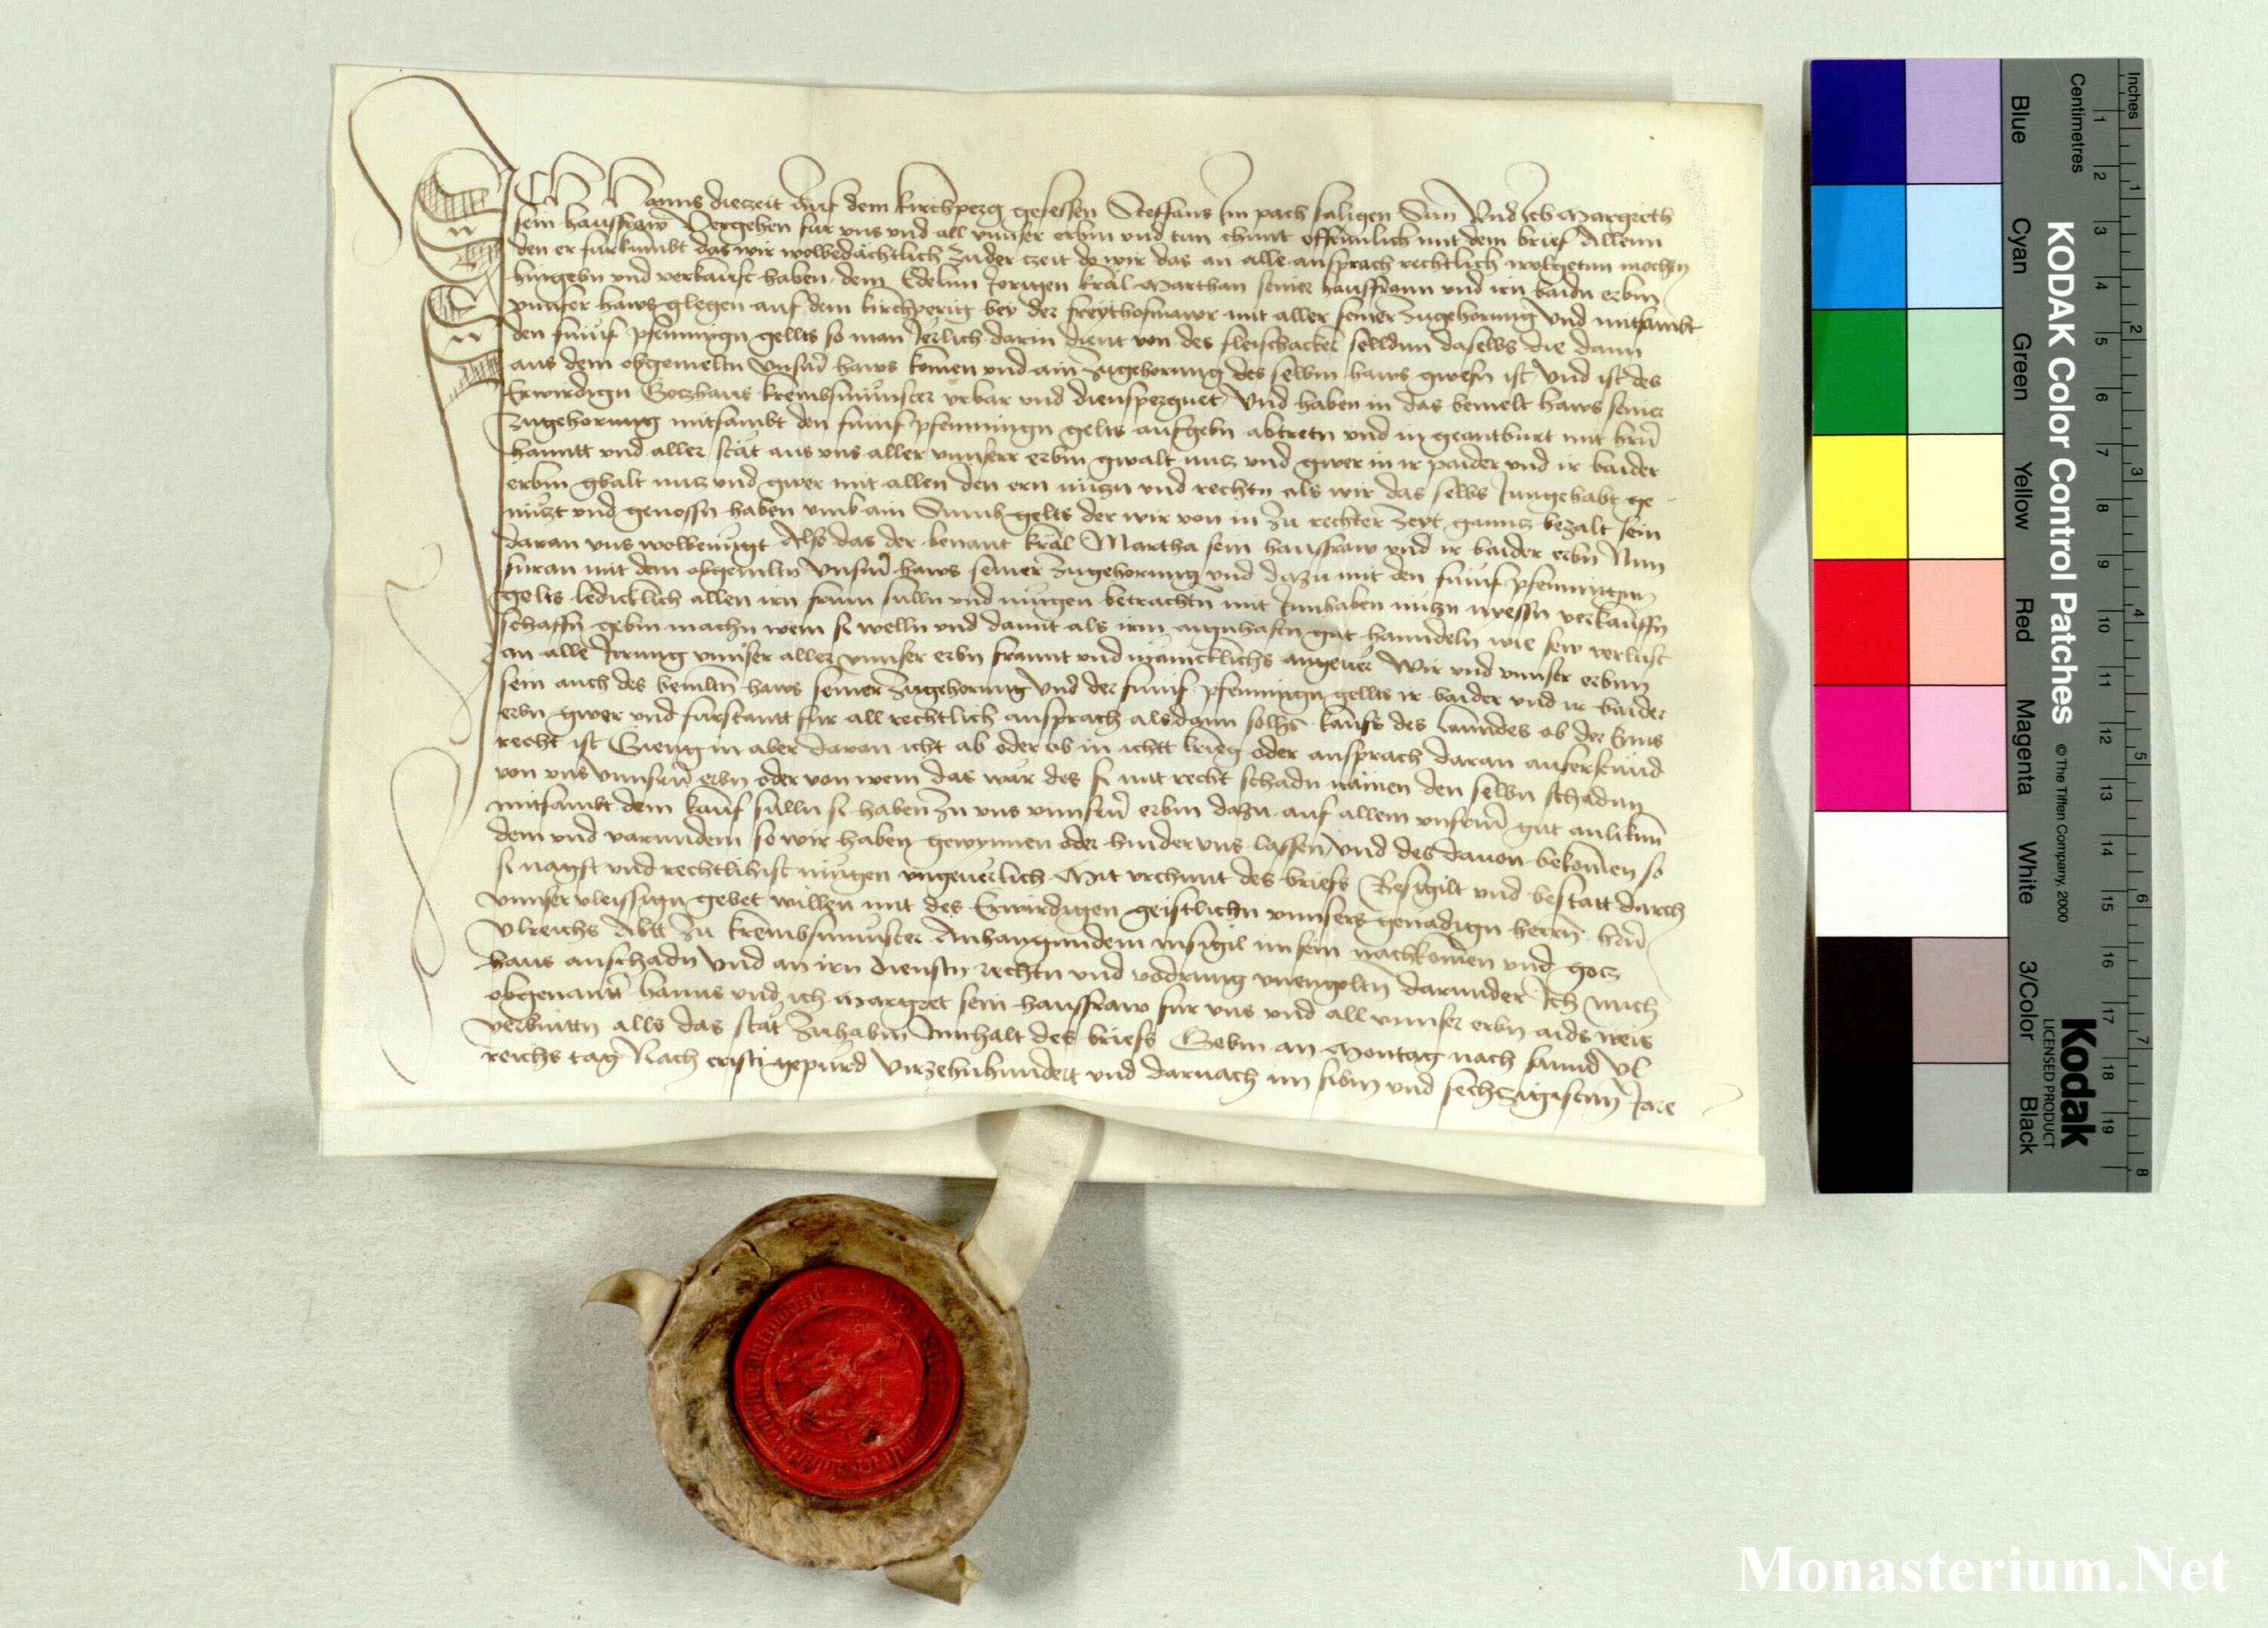 Ich Hanns diezeit auf dem kirchperg gesessen Steffans im pach saligen Sun Und Ich Margreth
sein hausfraw Vergehen fur vns vnd all vnnser erbm vnd tun chunt offennlich mit dem brief Allenn
den er furkumbt das wir wolbedächtlich Zuder czeit do wir das an alle ansprach rechtlich wolgetun mochtn
hingebn vnd verkaufft haben dem Edelnn Jorigen kräl Marthan seiner hausfrawn vnd irn baidn erbm
vnnser haws glegen auf dem kirchperig bey der freythofmawr mit aller seiner Zugehorung Vnd mitsambt
den fünff pfenningn gellts so man Jerlich darin dient von des fleischacker selldnn daselbs die dann
aus dem obgemeltn Vnserm haws komen vnd ain Zugehorung des selbm haws gwesn ist Vnd ist des
Erwirdign Gotzhaus krembsmünster vrbar vnd diensperguet Vnd haben in das bemelt haws seiner
Zugehorung mitsambt den fünff pfenningn gelts aufgebn abtretn vnd in geantburt mit
hanntt vnd aller stät aus vns aller vnnserr erbm gwalt nutz vnd gwer in ir paider vnd ir baider
erbm gbalt nutz vnd gwer mit allen den ern nützn vnd rechtn als wir das selbs Inngehabt ge-
nützt vnd genossn haben vmb ain Sumb gelts der wir von in zu rechter Zeyt ganntz bezalt sein
daran vns wolbenügt Also das der benant kräl Martha sein hausfraw vnd ir baider erbn Nun
füran mit dem obgemeltn Vnserm haws seiner Zugehorung vnd dazu mit den fünff pfenningn
gelts ledicklich allen irn frum sulln vnd mügen betrachtn mit Innhaben nützn niessn verkauffn
schaffn gebm machn wem si welln vnd damit als irm aignhaftn gut hanndeln wie sew verlust
an alle Irrung vnnser aller vnnser erbn frannt vnd mänicklichs angeuer Wir vnd vnnser erbnn
sein auch des bemeltn haws seiner Zugehorung Vnd der fünff pfenningn gellts ir baider vnd ir baider
erbn gwer vnd furstantt für all rechtlich ansprach alsdann solhs kaufs des lanndes ob der Enns
recht ist Gieng in aber daran icht ab oder ob in ichtt krieg oder ansprach daran auferstund
von vns Vnnsern erbn oder von wem das wär des si mit recht schadn nämen den selbn schadnn
mitsambt dem kauf sulln si haben Zu vns vnnsern erbm dazu auf allem vnserm gut anlikun
dem vnd varunndem so wir haben gewynnen oder hinder vns lassen vnd des dauon bekomen so
si nagst vnd rechtlihist mügen vngeuerlich Mit vrchunt des briefs Besigilt vnd bestatt durch
vnnser vleissign gebet willen mit des Erwirdigen geistlichn vnnsers genädign herrn hern
Vlreichs Abtt zu krembsmünster Anhangundem insigil im sein nachkomen vnd gotz
haus anschadn Vnd an irn diensten rechtn vnd vodrung vnengoltn darunder Ich mich
obgenantt hanns vnd ich Margret sein hausfraw fur vns vnd all vnnser erbn aids weis
verbinttn alls das stät Zuhabm Innhalt des briefs Gebm an Montag nach sannd Vl
reichs tag Nach cristi gepürd Virzehnhundert vnd darnach im sibm vnd sechtzigistenn Jare
KODAK Color Control Patches © The Tiffen Company, 2000
Kodak
LICENSED PRODUCT
Inches 1 2 3 4 5 6 7 8
Centimetres 1 2 3 4 5 6 7 8 9 10 11 12 13 14 15 16 17 18 19
Blue Cyan Green Yellow Red Magenta White 3/Color Black
Monasterium.Net